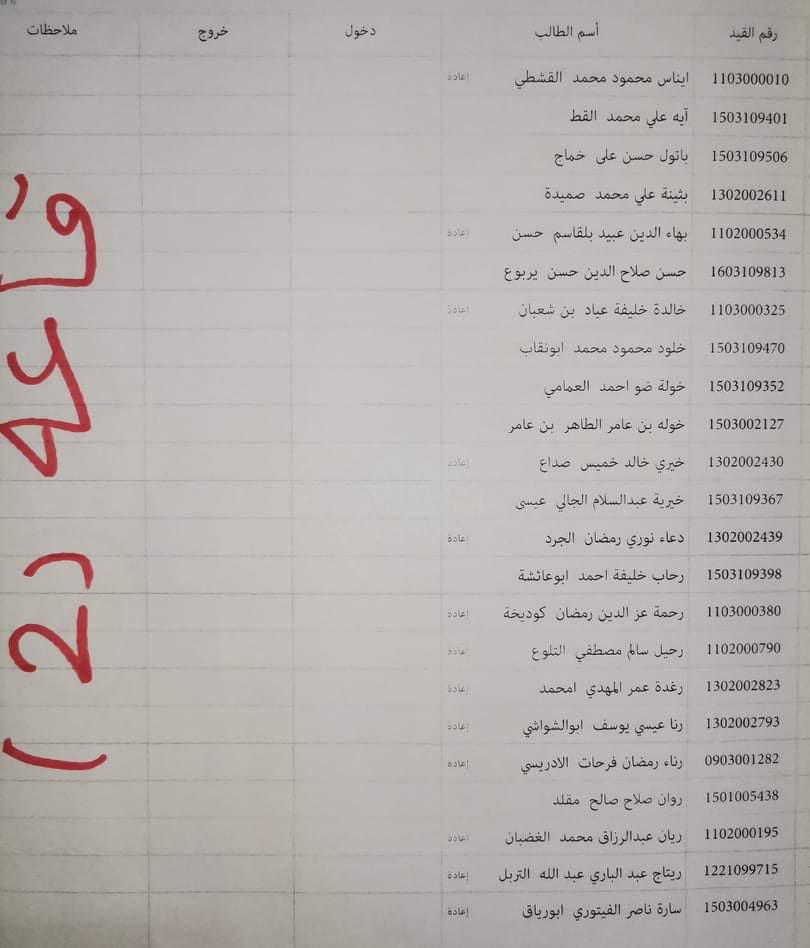 رقم القيد أسم الطالب دخول خروج ملاحظات
1103000010 ايناس محمود محمد القشطي إعادة
1503109401 آيه علي محمد القط
1503109506 باتول حسن على خماج
1302002611 بثينة علي محمد صميدة
1102000534 بهاء الدين عبيد بلقاسم حسن إعادة
1603109813 حسن صلاح الدين حسن يربوع
1103000325 خالدة خليفة عياد بن شعبان إعادة
1503109470 خلود محمود محمد ابونقاب
1503109352 خولة ضو احمد العمامي
1503002127 خوله بن عامر الطاهر بن عامر
1302002430 خيري خالد خميس صداع إعادة
1503109367 خيرية عبدالسلام الجالي عيسى
1302002439 دعاء نوري رمضان الجرد إعادة
1503109398 رحاب خليفة احمد ابوعائشة
1103000380 رحمة عز الدين رمضان كوديخة إعادة
1102000790 رحيل سالم مصطفي التلوع إعادة
1302002823 رغدة عمر المهدي امحمد إعادة
1302002793 رنا عيسي يوسف ابوالشواشي إعادة
0903001282 رناء رمضان فرحات الادريسي إعادة
1501005438 روان صلاح صالح مقلد
1102000195 ريان عبدالرزاق محمد الغضبان إعادة
1221099715 ريتاج عبد الباري عبد الله التربل إعادة
1503004963 سارة ناصر الفيتوري ابورياق إعادة
قاعة (2)